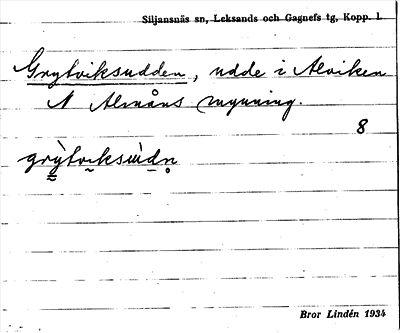 Siljansnäs sn, Leksands och Gagnefs tg, Kopp. l.
Grytviksudden, udde i Alviken
N Almåns mynning.
8
grỳtviksùdn̥
Bror Lindén 1934